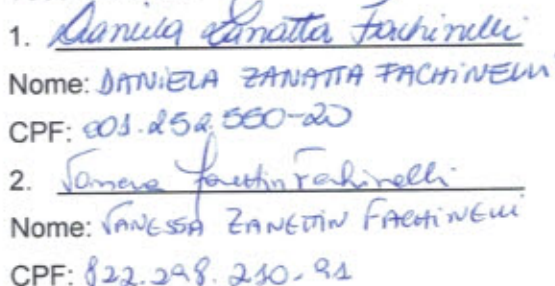 1. Daniela Zanatta Fachinelli
Nome: DANIELA ZANATTA FACHINELLI
CPF: 901.252.550-20
2. Vanessa Zanettin Fachinelli
Nome: VANESSA ZANETTIN FACHINELLI
CPF: 822.298.210-91